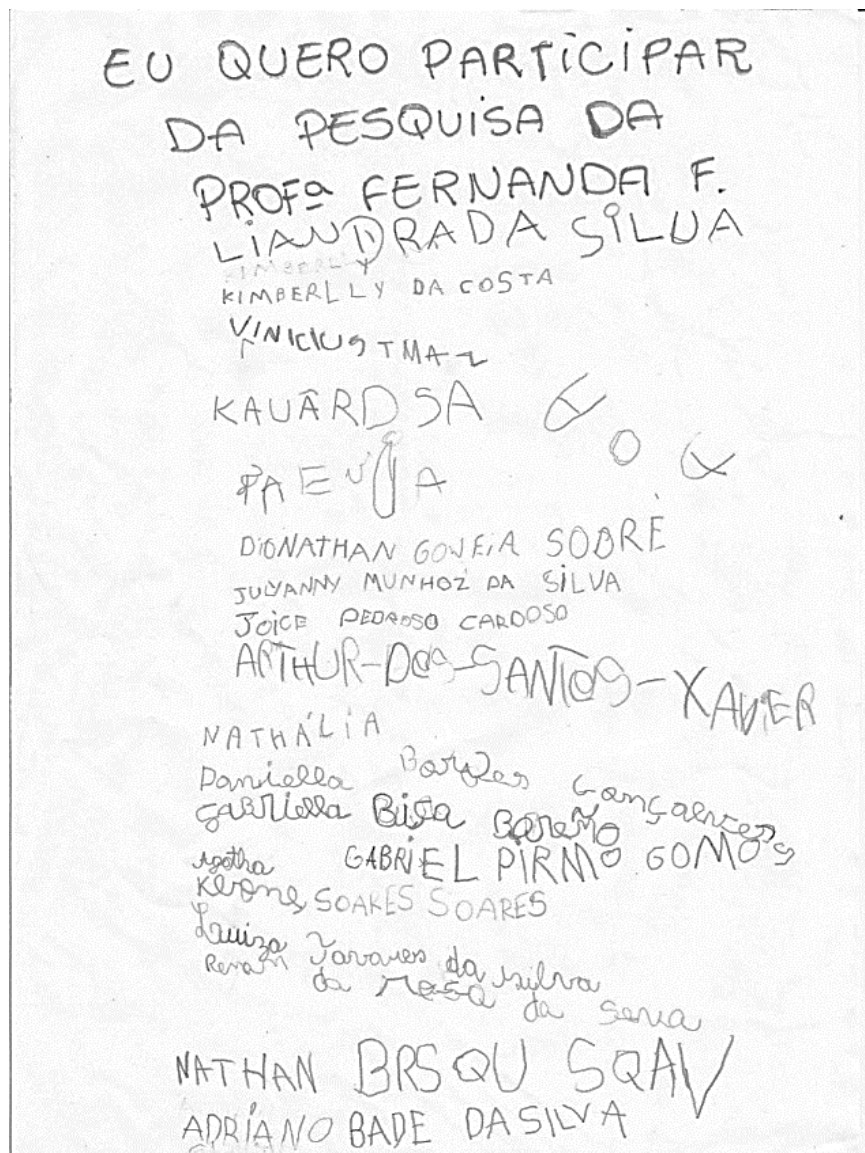 EU QUERO PARTICIPAR
DA PESQUISA DA
PROFª FERNANDA F.
LIANDRA DA SILUA
KIMBERLLY
KIMBERLLY DA COSTA
VINICIUS
KAUÂ
DIONATHAN GOUFIA SODRÉ
JULYANNY MUNHOZ DA SILVA
JOICE PEDROSO CARDOSO
ARTHUR-DOS-SANTOS-XAVIER
NATHÁLIA
Daniella Gonçalvess
gabriella
Agatha GABRIEL PIRMO GOMOS
SOARES SOARES
Luiza Tavares da silva
Renan da Rosa da
NATHAN BRSQU SQAV
ADRIANO BADE DA SILVA